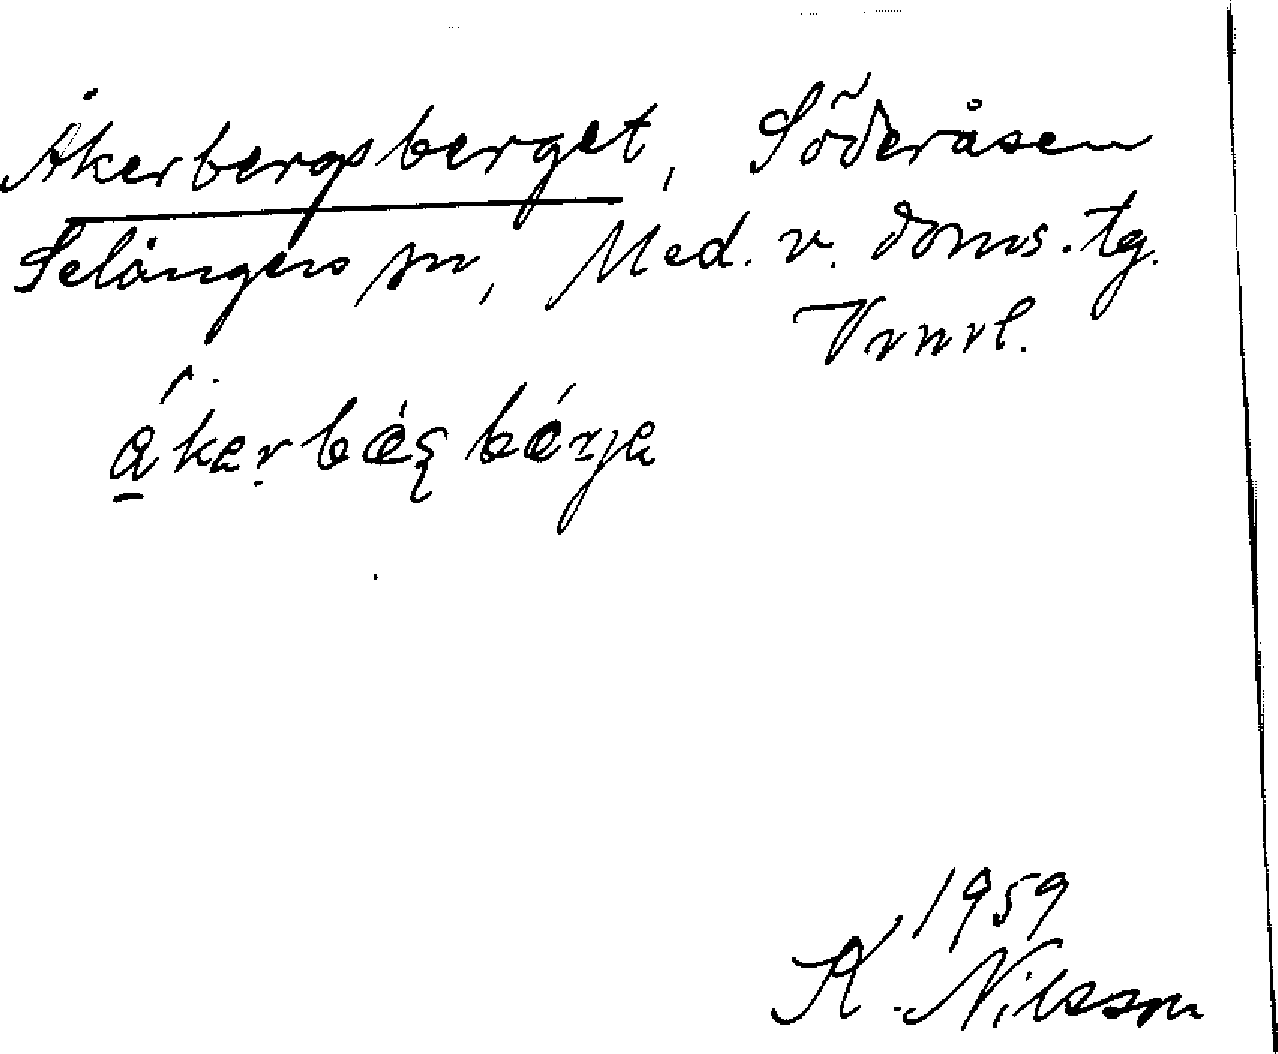 Åkerbergsberget, Söderåsen
Selångers sn, Med. v. doms. tg.
Vrnrl.
åkerbæṣbærje
1959
K. Nilsson